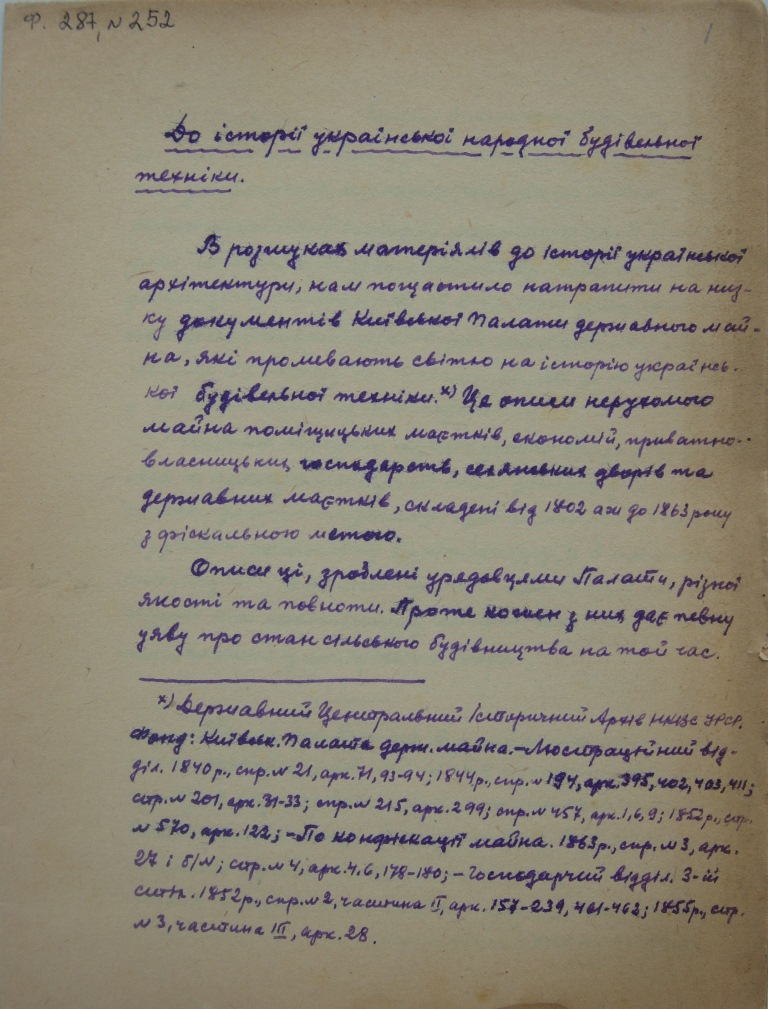 Ф. 287, № 252
1
До історії української народної будівельної
техніки.
В розшуках матеріялів до історії української
архітектури, нам пощастило натрапити на низ-
ку документів Київської Палати державного май-
на, які проливають світло на історію українсь-
кої будівельної техніки.х) Це описи нерухомого
майна поміщицьких маєтків, економій, приватно-
власницьких господарств, селянських дворів та
державних маєтків, складені від 1802 аж до 1863 року
з фіскальною метою.
Описи ці, зроблені урядовцями Палати, різної
якості та повноти. Проте кожен з них дає певну
уяву про стан сільського будівництва на той час.
х) Державний Центральний Історичний Архів НКВС УРСР.
Фонд: Київськ. Палата держ. майна.-Люстраційний від-
діл. 1840 р., спр. № 21, арк. 71, 93-94; 1844 р., спр. № 194, арк. 395, 402, 403, 411;
спр. № 201, арк. 31-33; спр. № 215, арк. 299; спр. № 457, арк. 1, 6, 9; 1852 р., спр.
№ 570, арк. 122; -По конфіскації майна. 1863 р., спр. № 3, арк.
27 і б/№; спр. № 4, арк. 4, 6, 178-180; - Господарчий відділ. 3-ій
1852 р., спр. № 2, частина II, арк. 157-239, 461-462; 1855 р., спр.
№ 3, частина III, арк. 28.